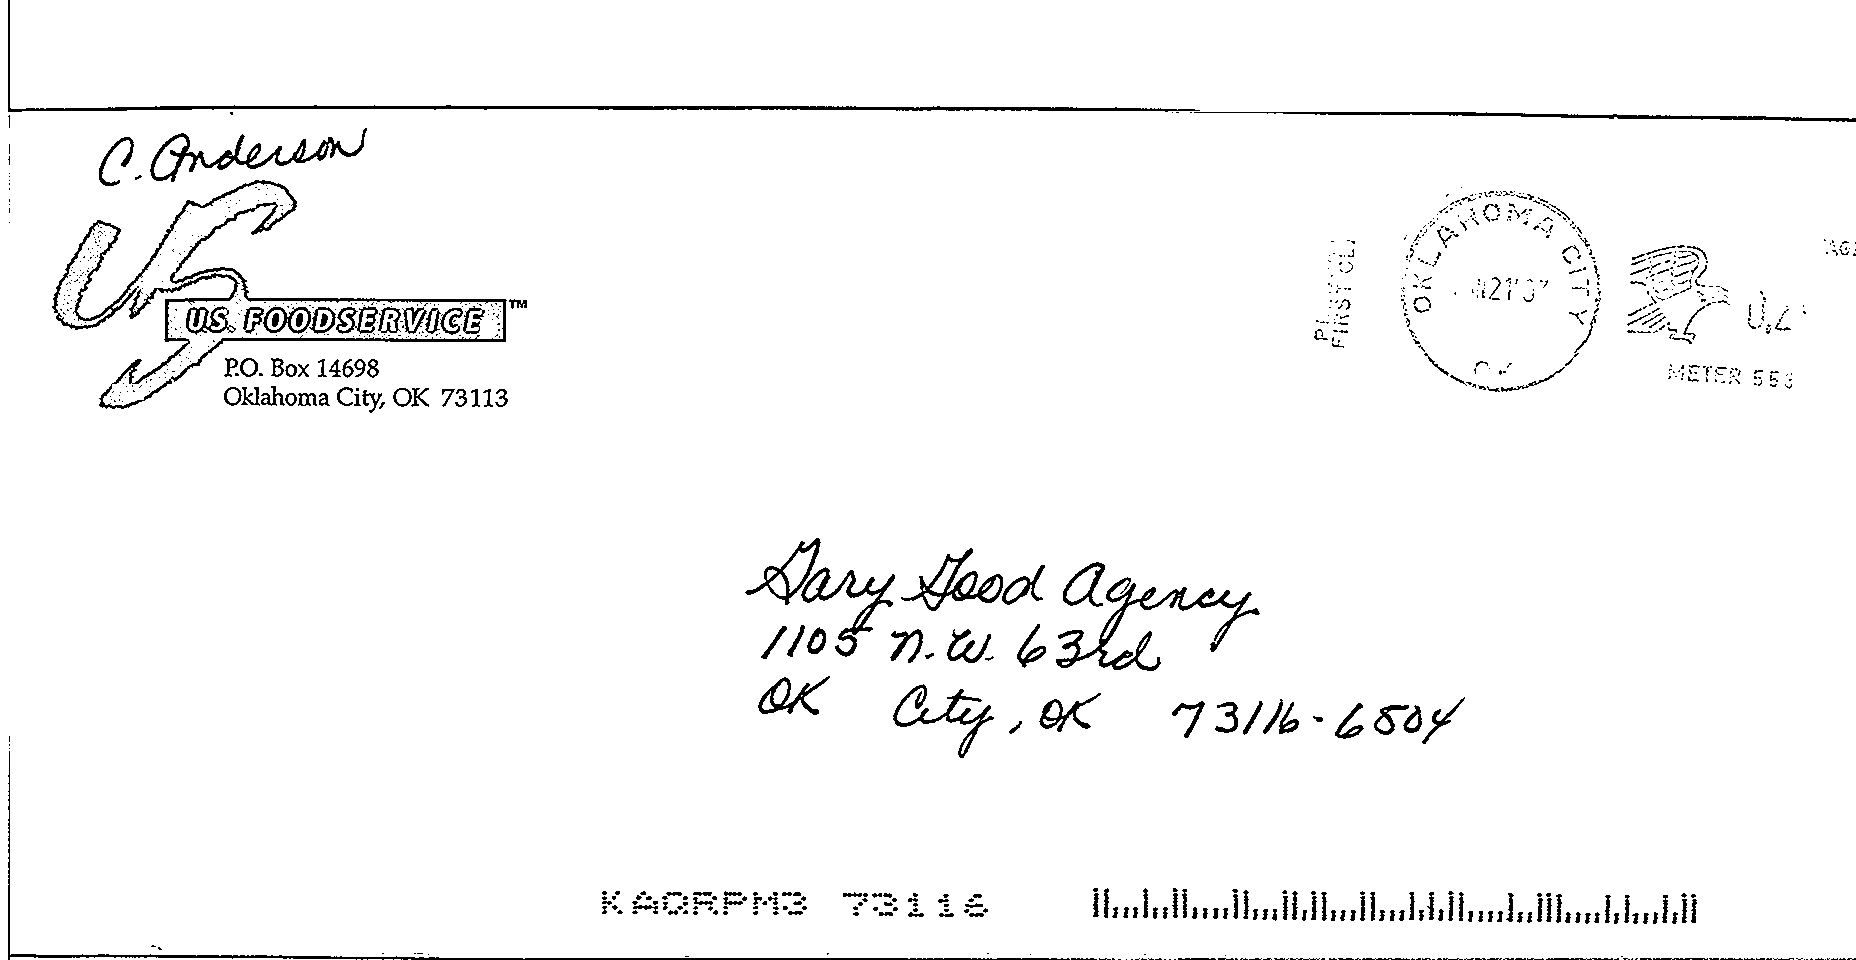 C. Anderson
US. FOODSERVICE™
P.O. Box 14698
Oklahoma City, OK 73113
FIRST CL
OKLAHOMA CITY
OK
METER
Gary Good Agency
1105 N.W. 63rd
OK City, OK 73116-6504
KAQRPM3 73116